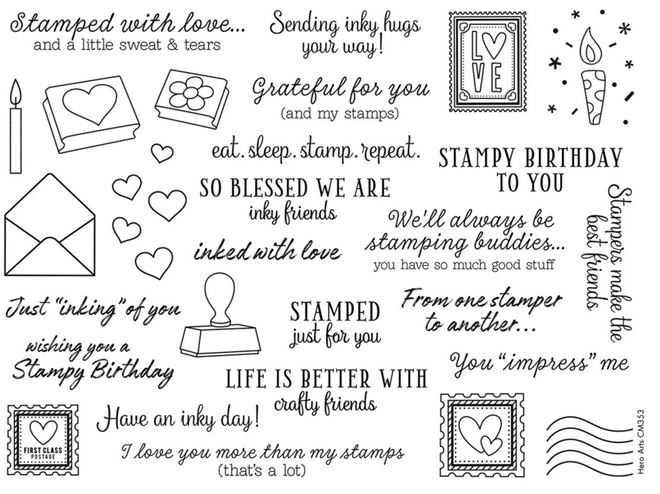 Stamped with love...
and a little sweat & tears
Sending inky hugs
your way!
LOVE
Grateful for you
(and my stamps)
eat. sleep. stamp. repeat.
STAMPY BIRTHDAY
TO YOU
SO BLESSED WE ARE
inky friends
We'll always be
stamping buddies...
you have so much good stuff
Stampers make the
best friends
inked with love
Just "inking" of you
STAMPED
just for you
From one stamper
to another...
wishing you a
Stampy Birthday
You "impress" me
LIFE IS BETTER WITH
crafty friends
Have an inky day!
FIRST CLASS
POSTAGE
I love you more than my stamps
(that's a lot)
Hero Arts CM353